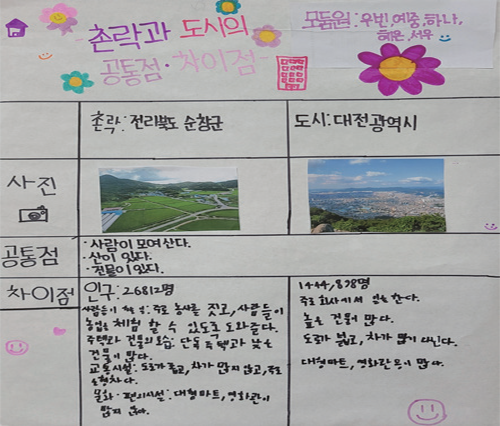 촌락과 도시의
공통점·차이점
모둠원: 우빈, 예중, 하나,
혜온, 서우
촌락: 전라북도 순창군
도시: 대전광역시
사진
공통점
·사람이 모여 산다.
·산이 있다.
·건물이 있다.
차이점
인구: 26812명
사람들이 하는 일: 주로 농사를 짓고, 사람들이
농업을 체험 할 수 있도록 도와준다.
주택과 건물의 모습: 단독주택과 낮은
건물이 많다.
교통시설: 도로가 좁고, 차가 많지 않고, 주로
문화·편의시설: 대형마트, 영화관이
많지 않다.
1444,898명
주로 회사에서 일을 한다.
높은 건물이 많다.
도로가 넓고, 차가 많이 다닌다.
대형마트, 영화관 등이 많다.